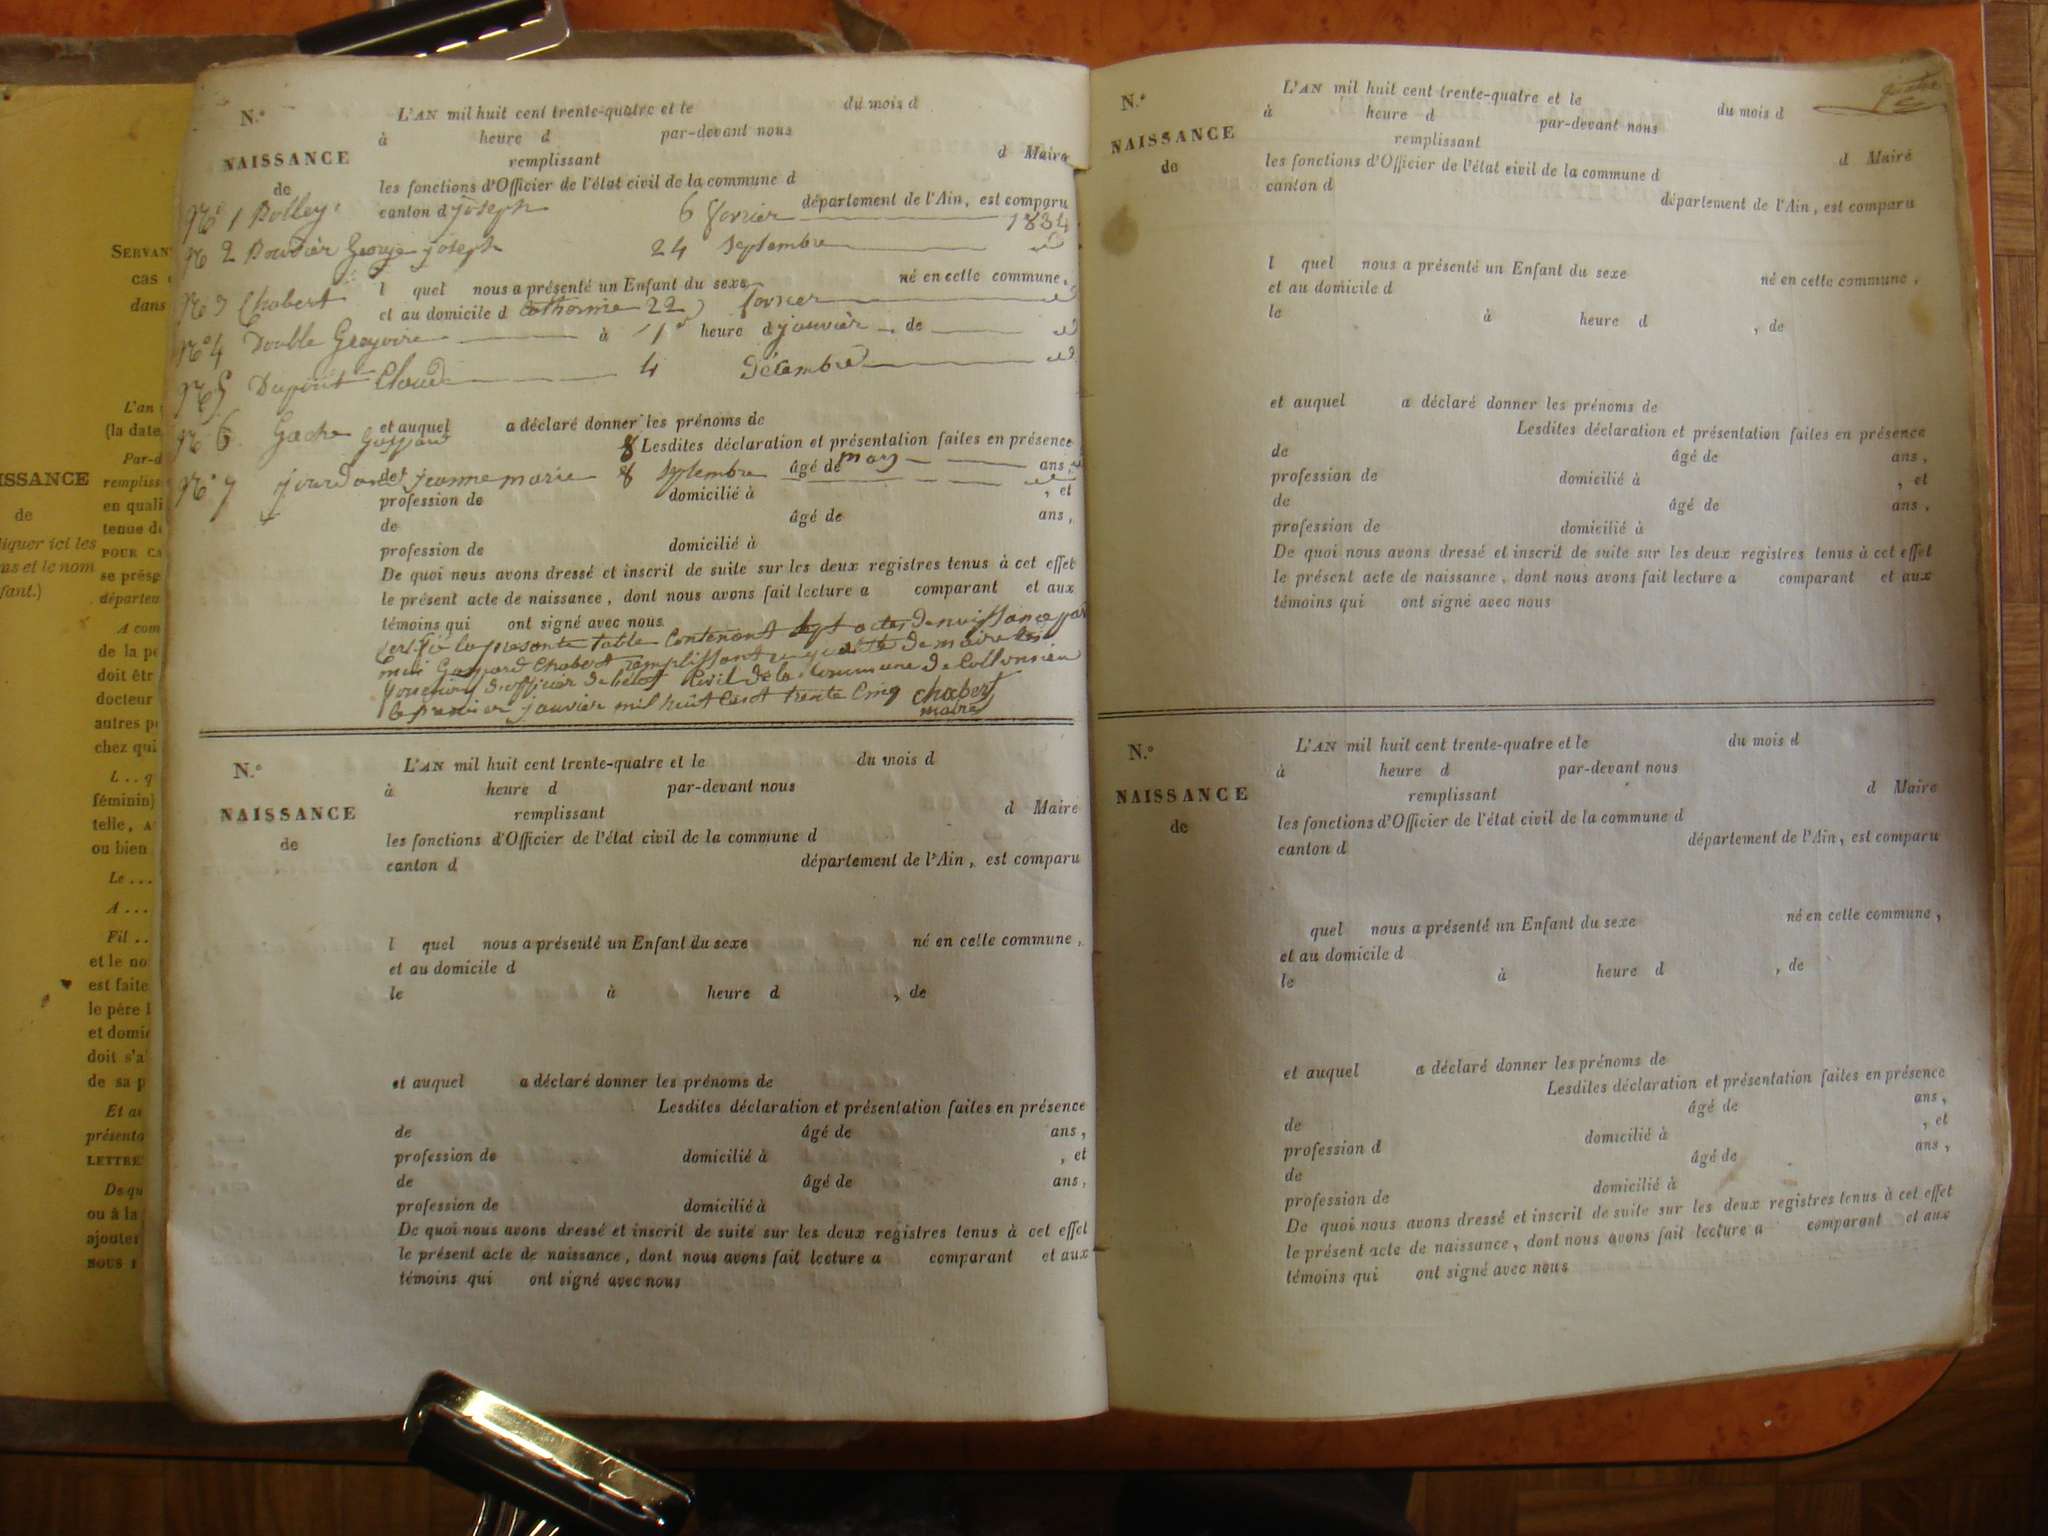 SERVAN
cas
dans
L'an
(la date
Par-d
ISSANCE
rempliss
de
en quali
tenue d
iquer ici les
POUR CA
ns et le nom
se prése
fant.)
départem
A com
de la pe
doit êtr
docteur
autres pe
chez qui
L . . q
féminin)
telle, A
ou bien
Le . . .
A . . . .
Fil . .
et le no
est faite
le père l
et domic
doit s'a
de sa p
Et au
présente
LETTRE
De qu
ou à la
ajouter
NOUS
N.°
NAISSANCE
de
L'AN mil huit cent trente-quatre et le du mois d
à heure d par-devant nous
remplissant d Maire
les fonctions d'Officier de l'état civil de la commune d
canton d département de l'Ain, est comparu
N° 1 Bolley joseph 6 fevrier 1834
N° 2 Bouvier George joseph 24 septembre id
l quel nous a présenté un Enfant du sexe né en cette commune,
et au domicile d
N° 3 Chabert catherine 22 fevrier id
N° 4 Double Gregoire 1er janvier id
à heure d , de
N° 5 Dupont Claude 4 décembre id
et auquel a déclaré donner les prénoms de
N° 6 Gache Gaspard 8 mars
Lesdites déclaration et présentation faites en présence
N° 7 Jourdan jeanne marie 8 septembre
de âgé de ans,
profession de domicilié à , et
de âgé de ans,
profession de domicilié à
De quoi nous avons dressé et inscrit de suite sur les deux registres tenus à cet effet
le présent acte de naissance, dont nous avons fait lecture a comparant et aux
témoins qui ont signé avec nous
la presente table contenant sept actes de naissance par
Gaspard Chabert remplissant de maire les
d'officier de l'état Civil de la Commune de
le premier janvier mil huit cent trente Cinq Chabert
maire
N.°
NAISSANCE
de
L'AN mil huit cent trente-quatre et le du mois d
à heure d par-devant nous
remplissant d Maire
les fonctions d'Officier de l'état civil de la commune d
canton d département de l'Ain, est comparu
l quel nous a présenté un Enfant du sexe né en cette commune,
et au domicile d
le à heure d , de
et auquel a déclaré donner les prénoms de
Lesdites déclaration et présentation faites en présence
de âgé de ans,
profession de domicilié à , et
de âgé de ans,
profession de domicilié à
De quoi nous avons dressé et inscrit de suite sur les deux registres tenus à cet effet
le présent acte de naissance, dont nous avons fait lecture a comparant et aux
témoins qui ont signé avec nous
quatre
N.°
NAISSANCE
de
L'AN mil huit cent trente-quatre et le du mois d
à heure d par-devant nous
remplissant d Maire
les fonctions d'Officier de l'état civil de la commune d
canton d département de l'Ain, est comparu
l quel nous a présenté un Enfant du sexe né en cette commune,
et au domicile d
le à heure d , de
et auquel a déclaré donner les prénoms de
Lesdites déclaration et présentation faites en présence
de âgé de ans,
profession de domicilié à , et
de âgé de ans,
profession de domicilié à
De quoi nous avons dressé et inscrit de suite sur les deux registres tenus à cet effet
le présent acte de naissance, dont nous avons fait lecture a comparant et aux
témoins qui ont signé avec nous
N.°
NAISSANCE
de
L'AN mil huit cent trente-quatre et le du mois d
à heure d par-devant nous
remplissant d Maire
les fonctions d'Officier de l'état civil de la commune d
canton d département de l'Ain, est comparu
quel nous a présenté un Enfant du sexe né en cette commune,
et au domicile d
le à heure d , de
et auquel a déclaré donner les prénoms de
Lesdites déclaration et présentation faites en présence
de âgé de ans,
profession d domicilié à , et
de âgé de ans,
profession de domicilié à
De quoi nous avons dressé et inscrit de suite sur les deux registres tenus à cet effet
le présent acte de naissance, dont nous avons fait lecture a comparant et aux
témoins qui ont signé avec nous